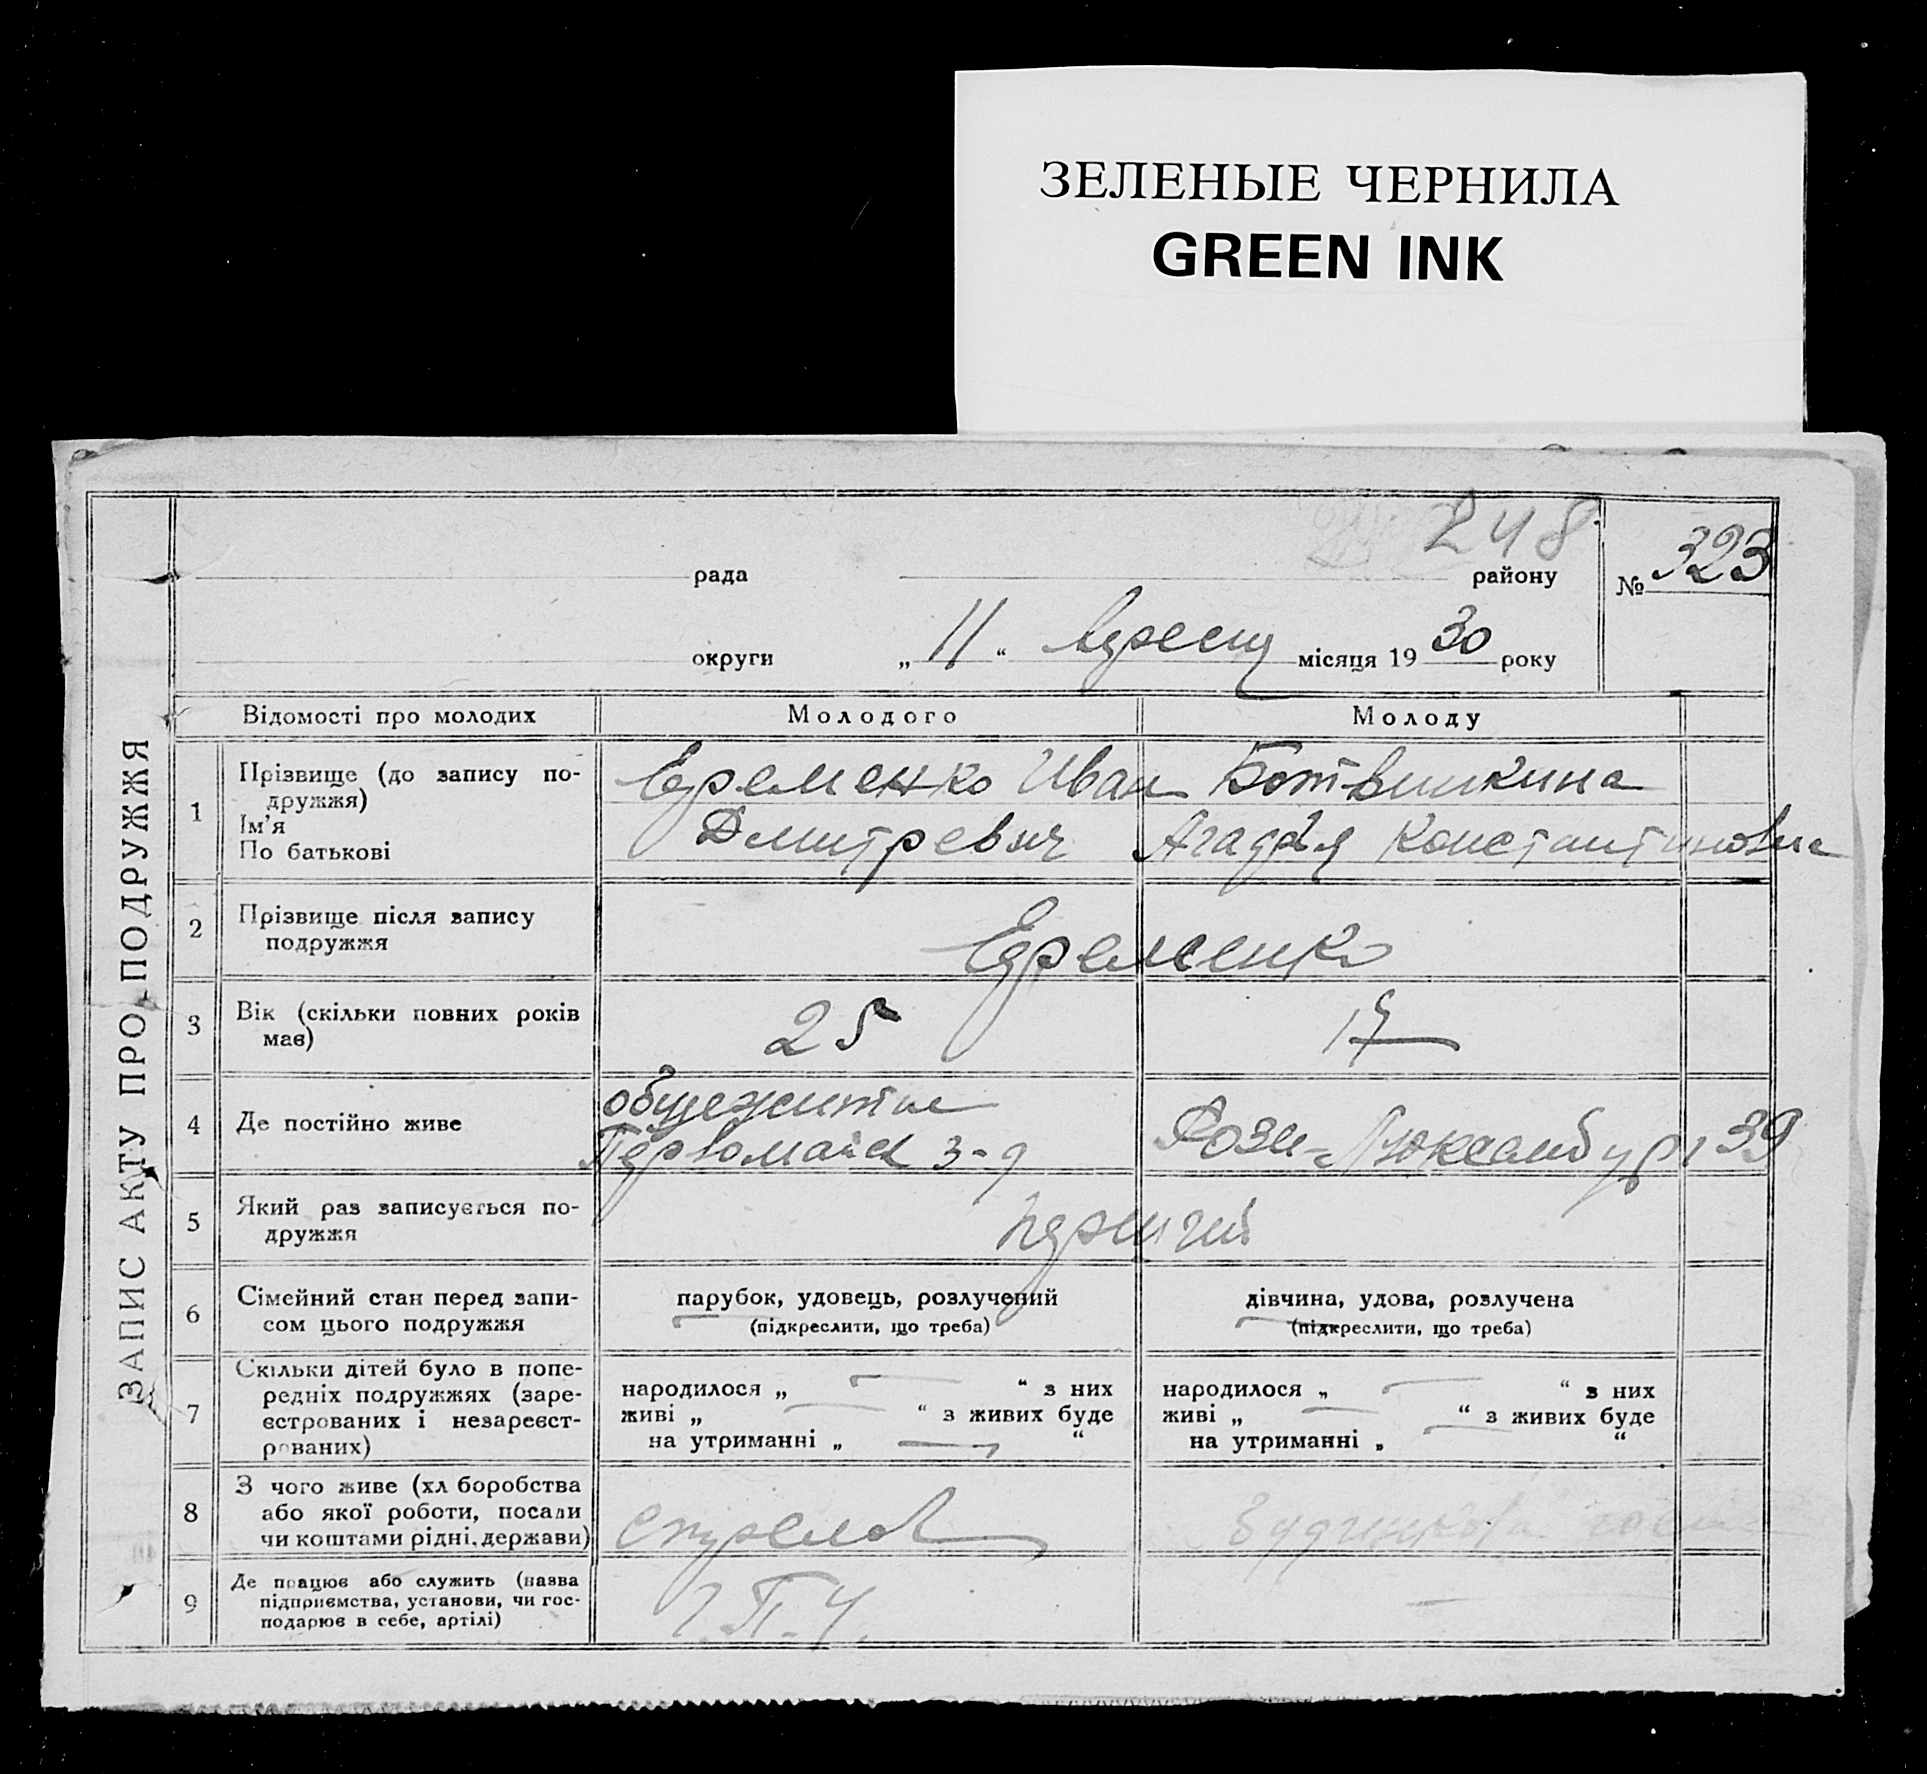 ЗЕЛЕНЫЕ ЧЕРНИЛА
GREEN INK
248
рада
району
№ 323
округи
„ 11 “ Вересня місяця 19 30 року
ЗАПИС АКТУ ПРО ПОДРУЖЖЯ
Відомості про молодих
Молодого
Молоду
1
Прізвище (до запису по-
дружжя)
Ім’я
По батькові
Еременко Иван
Дмитревич
Ботвинкина
Агафья Константиновна
2
Прізвище після запису
подружжя
Еременко
3
Вік (скільки повних років
має)
25
17
4
Де постійно живе
общежитие
Первомайск 3-д
Розы-Люксембург 39
5
Який раз записується по-
дружжя
перший
6
Сімейний стан перед запи-
сом цього подружжя
парубок, удовець, розлучений
(підкреслити, що треба)
дівчина, удова, розлучена
(підкреслити, що треба)
7
Скільки дітей було в попе-
редніх подружжях (заре-
єстрованих і незареєст-
рованих)
народилося „ — “ з них
живі „ — “ з живих буде
на утриманні „ — “
народилося „ — “ з них
живі „ — “ з живих буде
на утриманні „ “
8
З чого живе (хл боробства
або якої роботи, посади
чи коштами рідні, держави)
9
Де працює або служить (назва
підприємства, установи, чи гос-
подарює в себе, артілі)
Г.П.У.
—